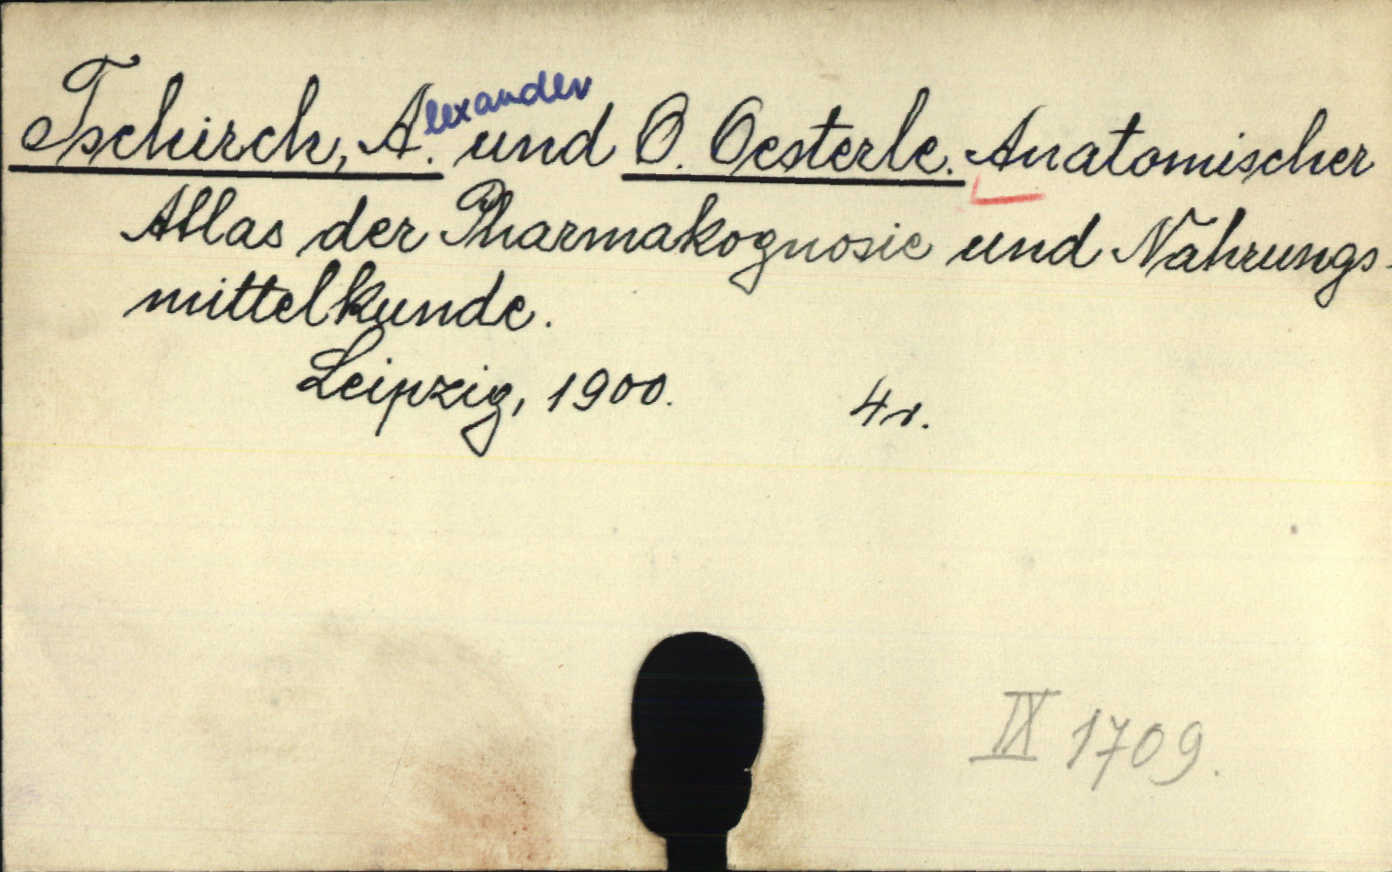 Tschirch, Alexander und O. Oesterle. Anatomischer
Atlas der Pharmakognosie und Nahrungs-
mittelkunde.
Leipzig, 1900. 4r.
IX 1709.